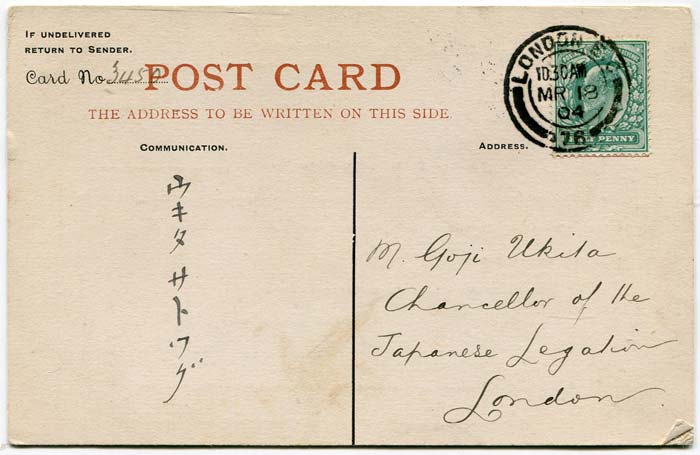 IF UNDELIVERED
RETURN TO SENDER.
Card No. 3450
POST CARD
THE ADDRESS TO BE WRITTEN ON THIS SIDE.
COMMUNICATION.
ADDRESS.
LONDON
10.30AM
MR 18
04
376
PENNY
ウキタサトワグ
M. Goji Ukita
Chancellor of the
Japanese Legation
London.